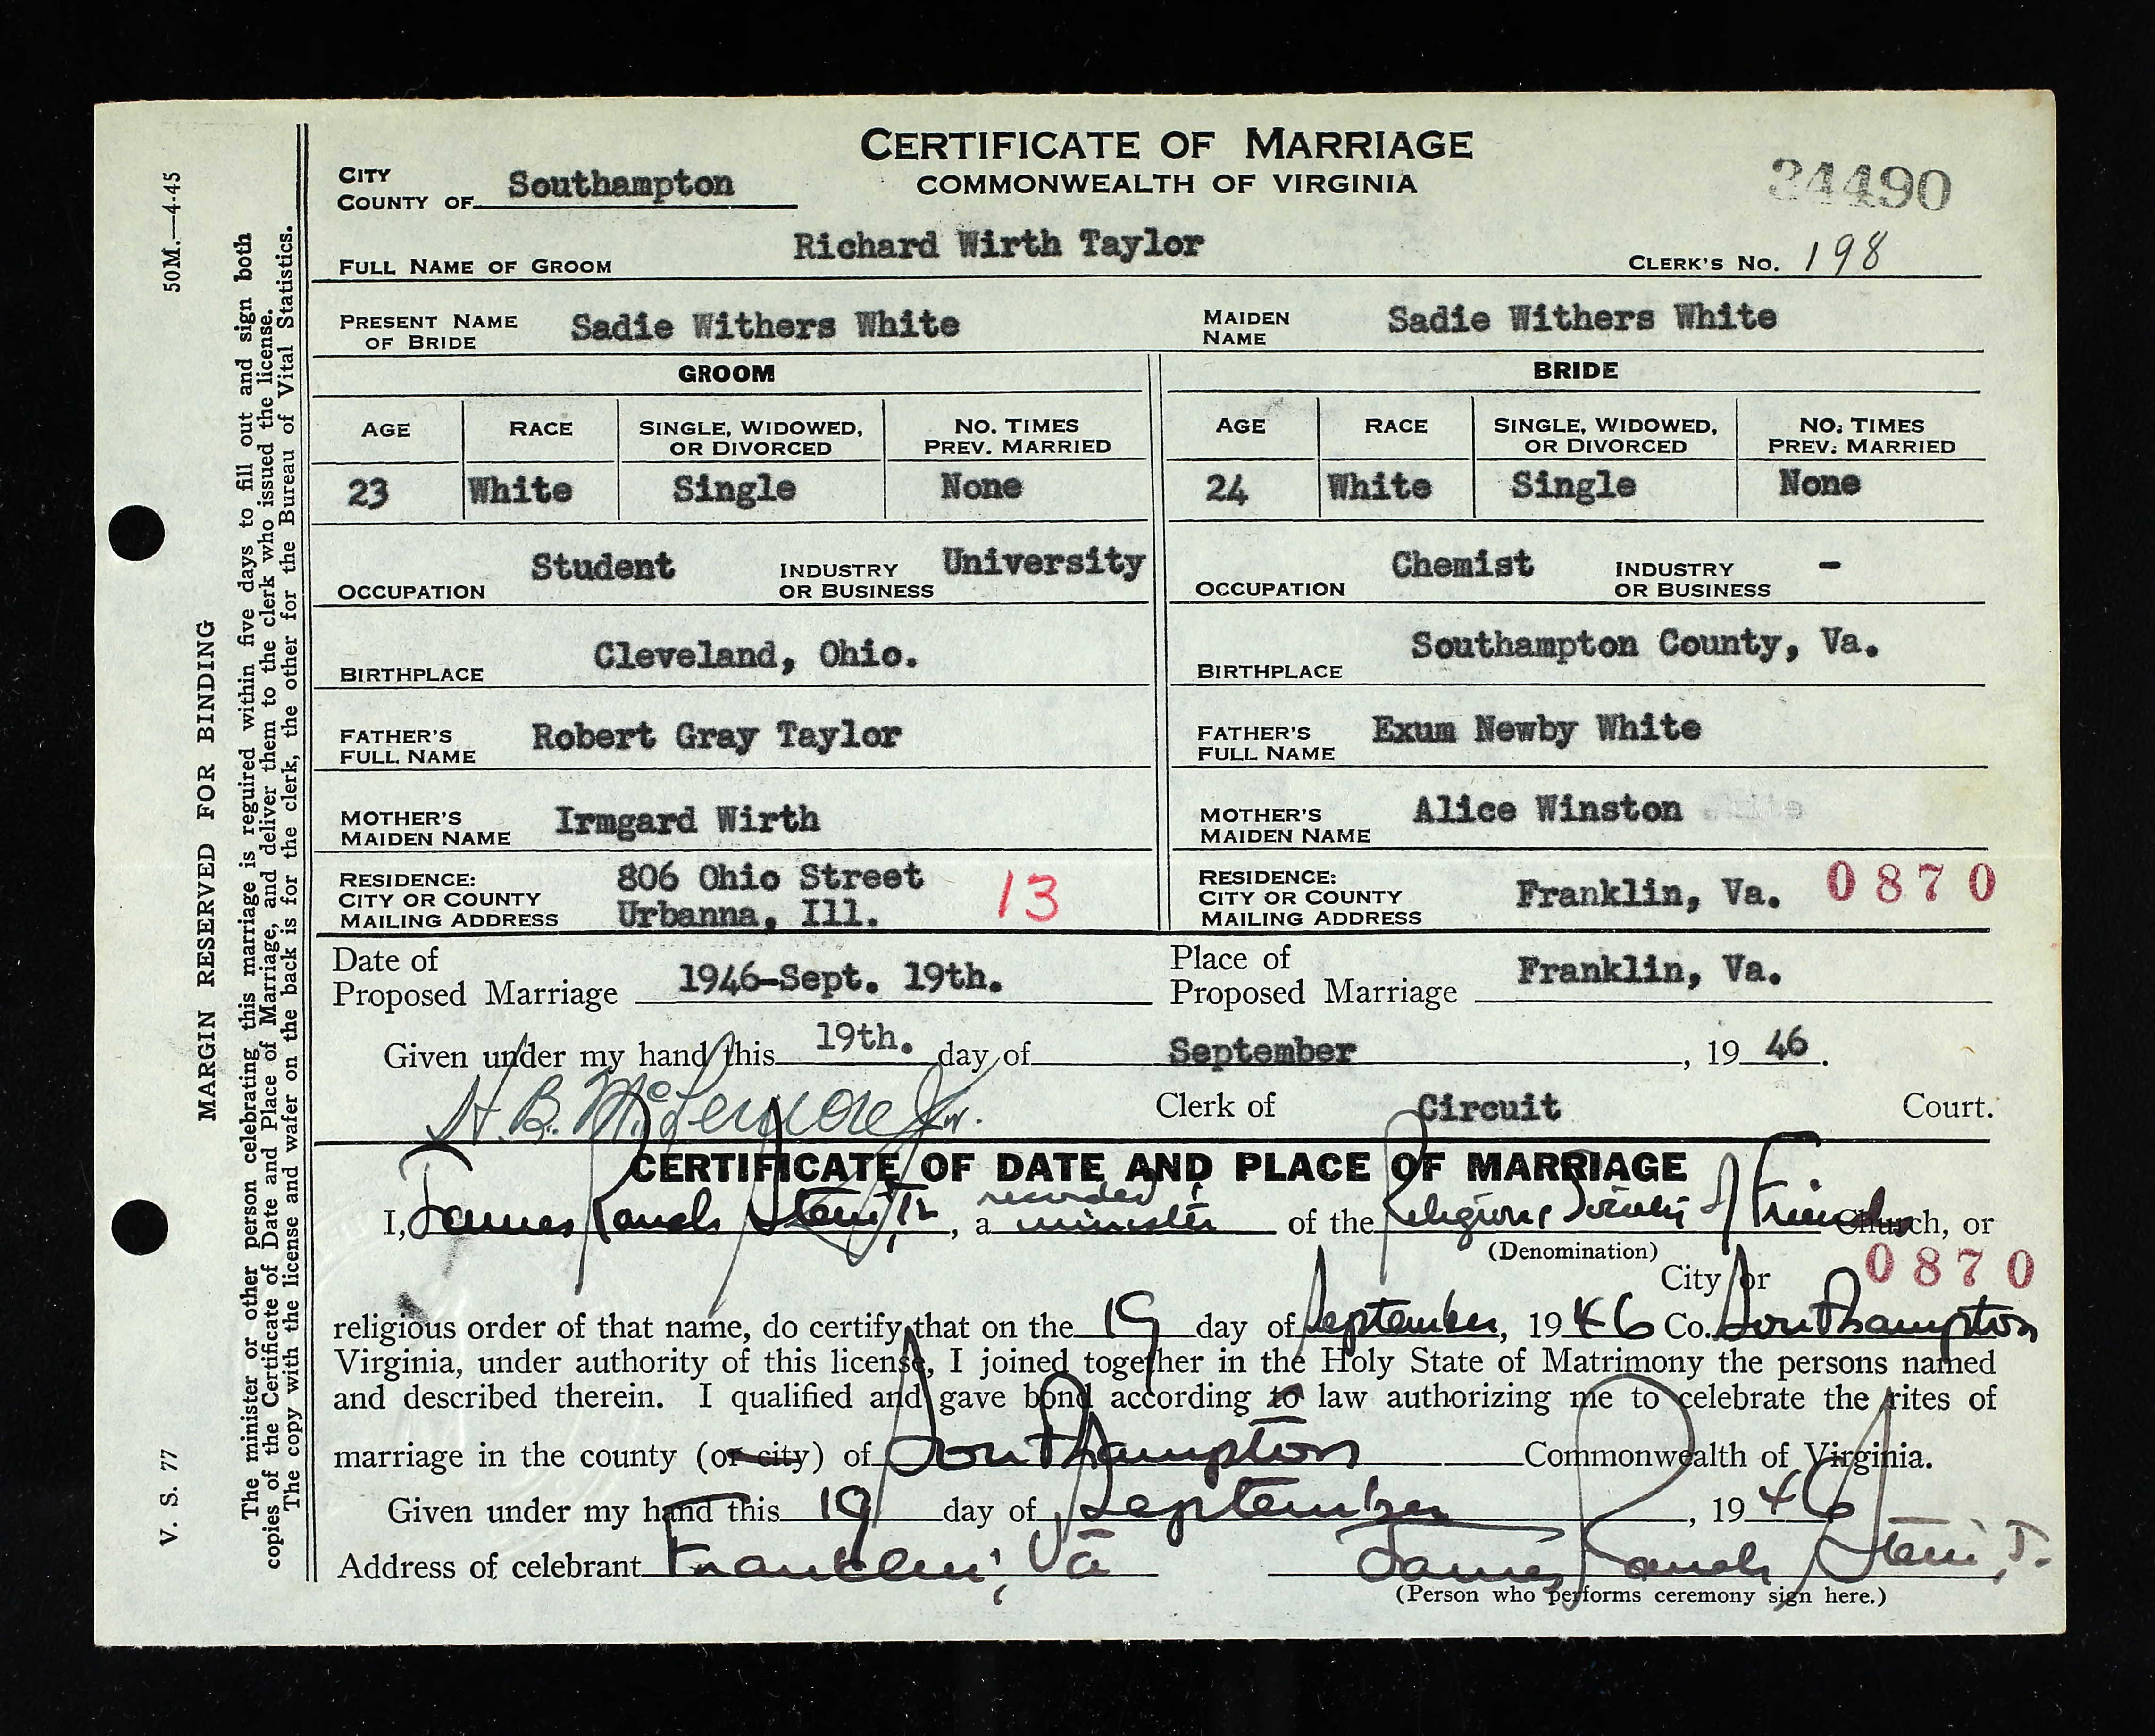 CERTIFICATE OF MARRIAGE
COMMONWEALTH OF VIRGINIA
34490
CITY
COUNTY OF Southampton
FULL NAME OF GROOM Richard Wirth Taylor CLERK'S NO. 198
PRESENT NAME OF BRIDE Sadie Withers White MAIDEN NAME Sadie Withers White
GROOM BRIDE
AGE RACE SINGLE, WIDOWED, OR DIVORCED NO. TIMES PREV. MARRIED AGE RACE SINGLE, WIDOWED, OR DIVORCED NO. TIMES PREV. MARRIED
23 White Single None 24 White Single None
OCCUPATION Student INDUSTRY OR BUSINESS University OCCUPATION Chemist INDUSTRY OR BUSINESS -
BIRTHPLACE Cleveland, Ohio. BIRTHPLACE Southampton County, Va.
FATHER'S FULL NAME Robert Gray Taylor FATHER'S FULL NAME Exum Newby White
MOTHER'S MAIDEN NAME Irmgard Wirth MOTHER'S MAIDEN NAME Alice Winston
RESIDENCE: CITY OR COUNTY MAILING ADDRESS 806 Ohio Street Urbanna, Ill. 13 RESIDENCE: CITY OR COUNTY MAILING ADDRESS Franklin, Va. 0870
Date of Proposed Marriage 1946-Sept. 19th. Place of Proposed Marriage Franklin, Va.
Given under my hand this 19th. day of September, 1946.
H. B. McLemore Jr. Clerk of Circuit Court.
CERTIFICATE OF DATE AND PLACE OF MARRIAGE
I, James Jr., a recorded minister of the Religious Society of Friends Church, or
(Denomination)
City or 0870
religious order of that name, do certify that on the 19 day of September, 1946 Co. Southampton
Virginia, under authority of this license, I joined together in the Holy State of Matrimony the persons named
and described therein. I qualified and gave bond according to law authorizing me to celebrate the rites of
marriage in the county (or city) of Southampton Commonwealth of Virginia.
Given under my hand this 19 day of September, 1946
Address of celebrant Franklin, Va James
(Person who performs ceremony sign here.)
50M.—4-45
MARGIN RESERVED FOR BINDING
V. S. 77
The minister or other person celebrating this marriage is required within five days to fill out and sign both
copies of the Certificate of Date and Place of Marriage, and deliver them to the clerk who issued the license.
The copy with the license and wafer on the back is for the clerk, the other for the Bureau of Vital Statistics.